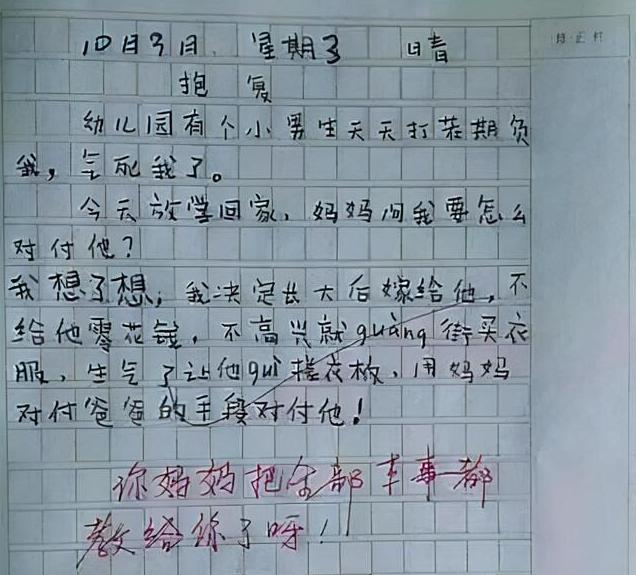 10月3日 星期3 晴
抱复
幼儿园有个小男生天天打花期负
我，气死我了。
今天放学回家，妈妈问我要怎么
对付他？
我想了想，我决定长大后嫁给他，不
给他零花钱，不高兴就guàng街买衣
服，生气了让他guì搓衣板，用妈妈
对付爸爸的手段对付他！
你妈妈把全部本事都
教给你了呀！